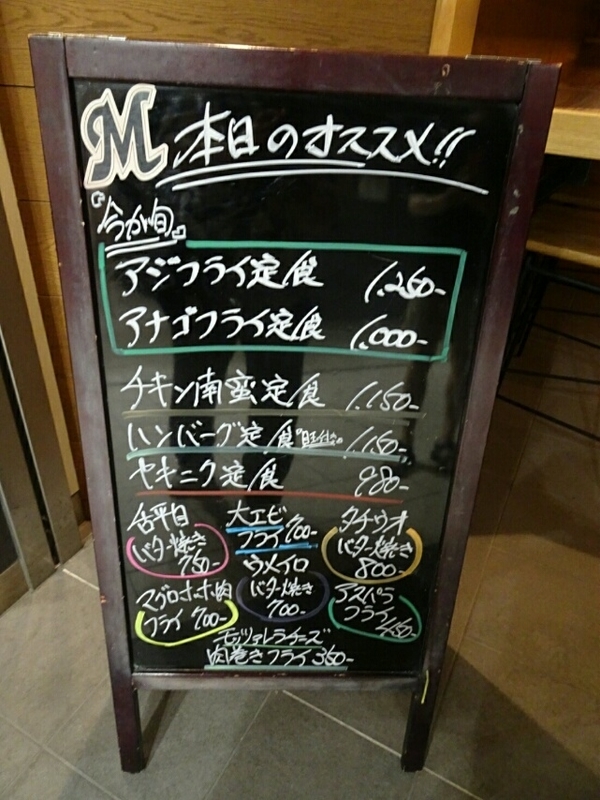 M 本日のオススメ!!
"今が旬"
アジフライ定食 1,250-
アナゴフライ定食 1,000-
チキン南蛮定食 1,150-
ハンバーグ定食 1,150-
ヤキニク定食 980-
舌平目
バター焼き
750-
大エビ
フライ 700-
タチウオ
バター焼き
800-
マグロホホ肉
フライ 700-
ウメイロ
バター焼き
700-
アスパラ
フライ 450-
モッツァレラチーズ
肉巻きフライ 350-